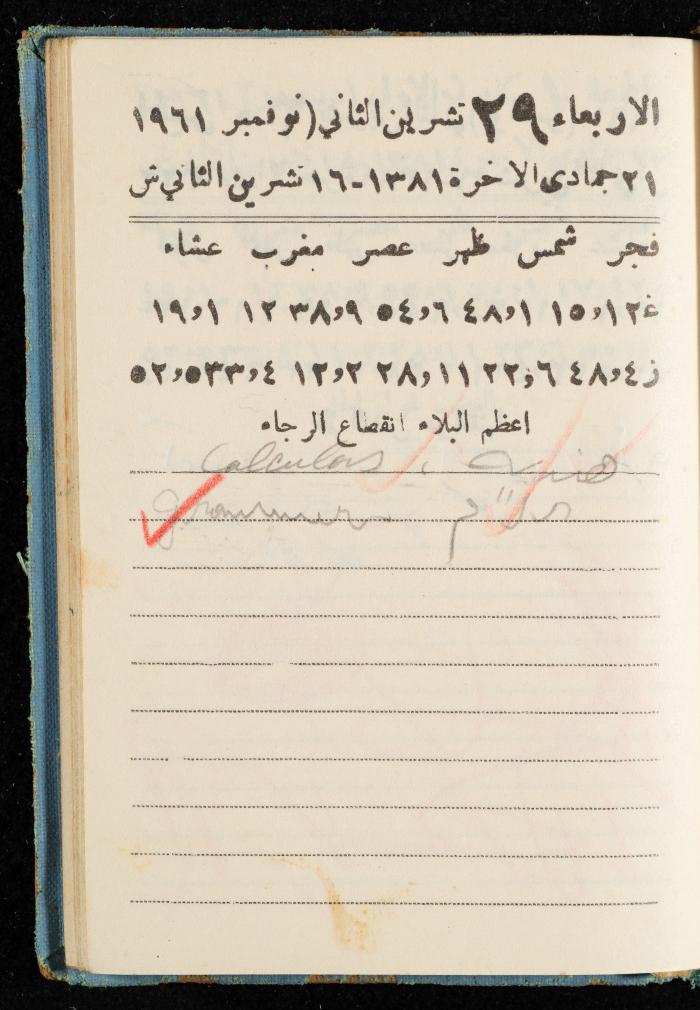 الاربعاء ٢٩ تشرين الثاني (نوفمبر ١٩٦١
٢١ جمادى الاخرة ١٣٨١-١٦ تشرين الثاني ش
فجر شمس ظهر عصر مغرب عشاء
غ ١٢و١٥ ١و٤٨ ٦و٥٤ ٩و٣٨ ١٢ ١و١٩
ز ٤و٤٨ ٦و٢٢ ١١و٢٨ ٢و١٢ ٤و٣٣ ٥و٥٢
اعظم البلاء انقطاع الرجاء
calculas,
grammer